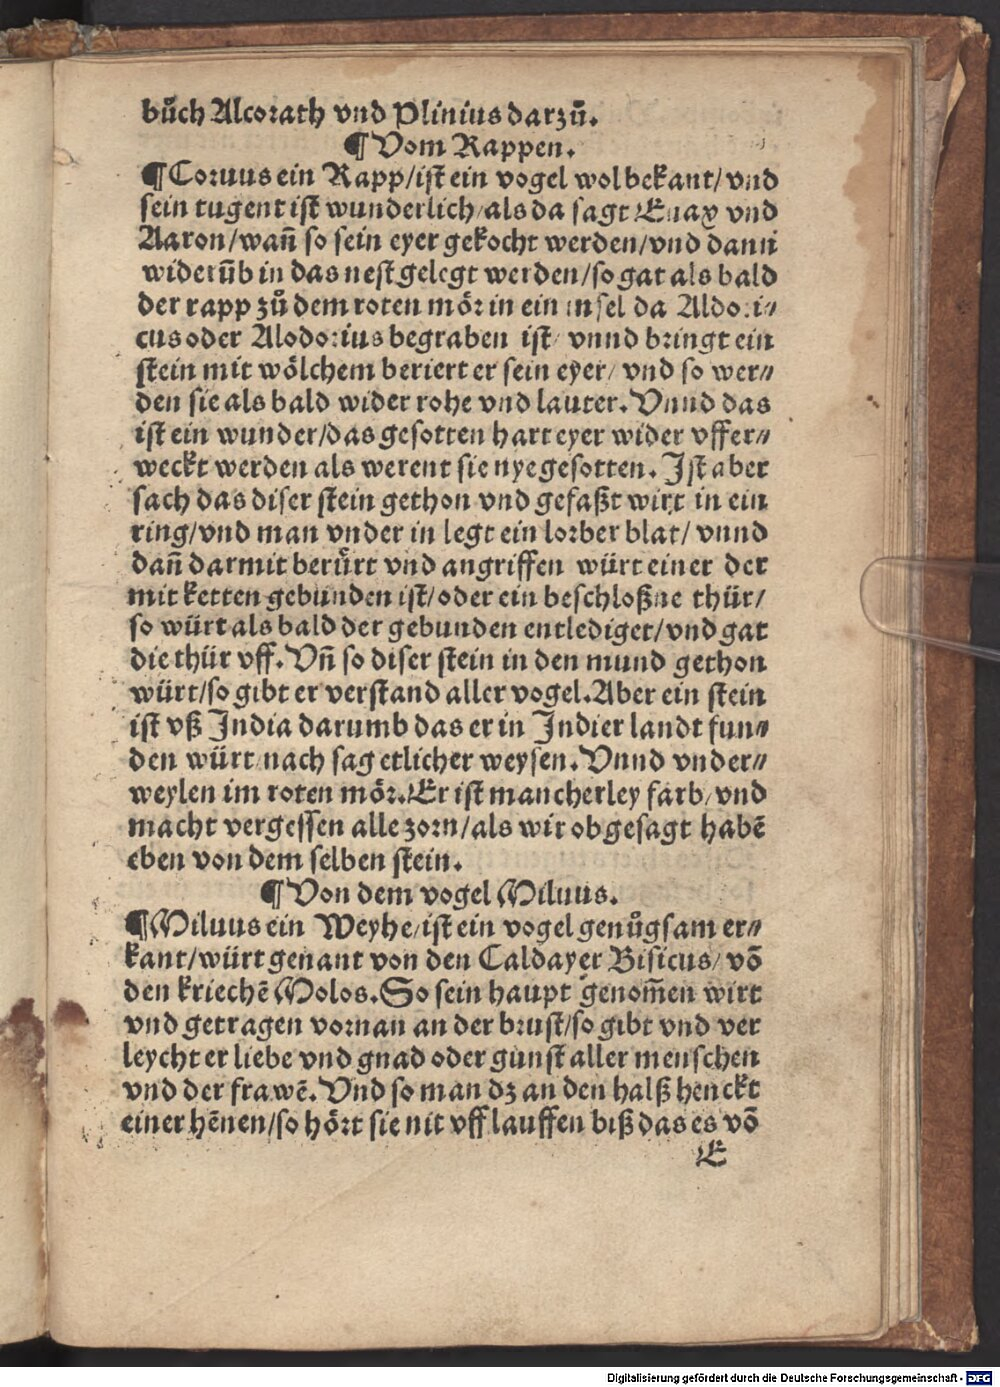 bůch Alcorath vnd Plinius darzů.
¶ Vom Rappen.
¶ Coruus ein Rapp/ist ein vogel wol bekant/ vnd
sein tugent ist wunderlich/als da sagt Euax vnd
Aaron/wañ so sein eyer gekocht werden/vnd dann
widerūb in das nest gelegt werden/so gat als bald
der rapp zů dem roten mör in ein insel da Aldori⸗
cus oder Alodorius begraben ist/ vnnd bringt ein
stein mit wölchem beriert er sein eyer/ vnd so wer⸗
den sie als bald wider rohe vnd lauter. Vnnd das
ist ein wunder/das gesotten hart eyer wider vffer⸗
weckt werden als werent sie nye gesotten. Ist aber
sach das diser stein gethon vnd gefaßt wirt in ein
ring/vnd man vnder in legt ein lorber blat/ vnnd
dañ darmit berürt vnd angriffen würt einer der
mit ketten gebunden ist/oder ein beschloßne thür/
so würt als bald der gebunden entlediget/vnd gat
die thür vff. Vñ so diser stein in den mund gethon
würt/so gibt er verstand aller vogel. Aber ein stein
ist vß India darumb das er in Indier landt fun⸗
den würt/nach sag etlicher weysen. Vnnd vnder⸗
weylen im roten mör. Er ist mancherley farb/vnd
macht vergessen alle zorn/als wir obgesagt habē
eben von dem selben stein.
¶ Von dem vogel Miluus.
¶ Miluus ein Weyhe/ist ein vogel genůgsam er⸗
kant/würt genant von den Caldayer Bisicus/ vō
den kriechē Molos. So sein haupt genom̄en wirt
vnd getragen vornan an der brust/so gibt vnd ver
leycht er liebe vnd gnad oder gunst aller menschen
vnd der frawē. Vnd so man dz an den halß henckt
einer hēnen/so hört sie nit vff lauffen biß das es vō
E
Digitalisierung gefördert durch die Deutsche Forschungsgemeinschaft - DFG